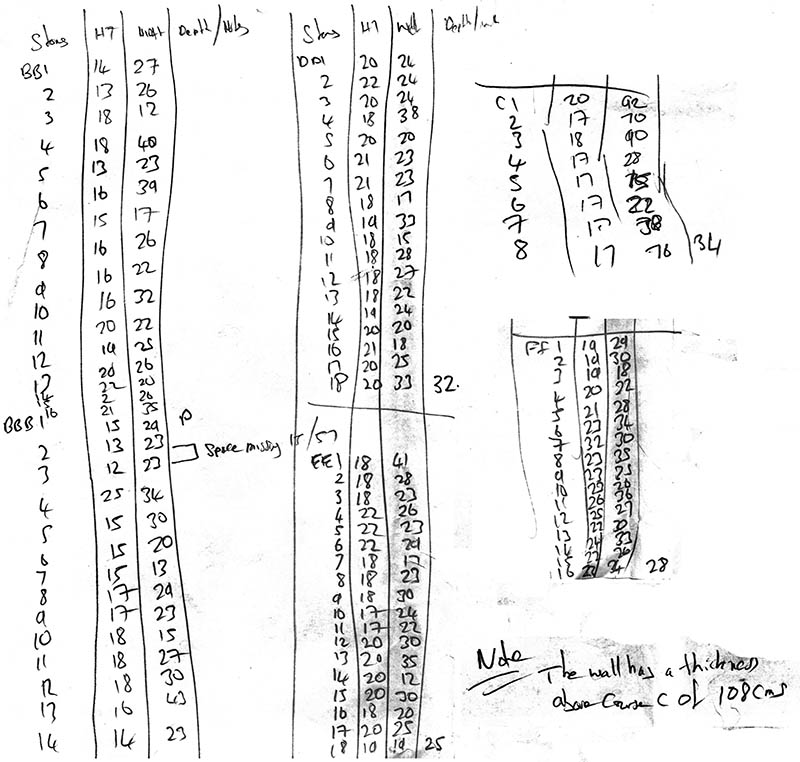 Stone HT Width Depth/Notes
BB1 14 27
2 13 26
3 18 12
4 18 40
5 13 23
6 16 39
7 15 17
8 16 26
9 16 22
10 16 32
11 20 22
12 19 25
13 20 26
14 22 20
15 2 26
16 21 35
BBB1 15 29
2 13 23 Space missing 15/57
3 12 23
4 25 34
5 15 30
6 15 20
7 15 13
8 17 29
9 17 23
10 18 15
11 18 27
12 18 30
13 16 43
14 14 23
Stone HT Width Depth/
DD1 20 24
2 22 24
3 20 24
4 18 38
5 20 20
6 21 23
7 21 23
8 18 17
9 19 33
10 18 15
11 18 28
12 18 27
13 18 22
14 19 24
15 20 20
16 21 18
17 20 25
18 20 33 32.
EE1 18 41
2 18 28
3 18 23
4 22 26
5 22 23
6 22 29
7 18 17
8 18 23
9 18 30
10 17 24
11 17 22
12 20 30
13 20 35
14 20 12
15 20 30
16 18 20
17 20 25
18 19 19 25
C1 20 92
2 17 70
3 18 90
4 17 28
5 17
6 17 22
7 17 38
8 17 76 34
FF 1 19 29
2 19 30
3 19 18
4 20 32
5 21 28
6 23 34
7 32 30
8 23 35
9 23 25
10 23 20
11 26 36
12 25 27
13 22 30
14 24 33
15 22 26
16 34 28
Note The wall has a thickness
above Course C of 108cms